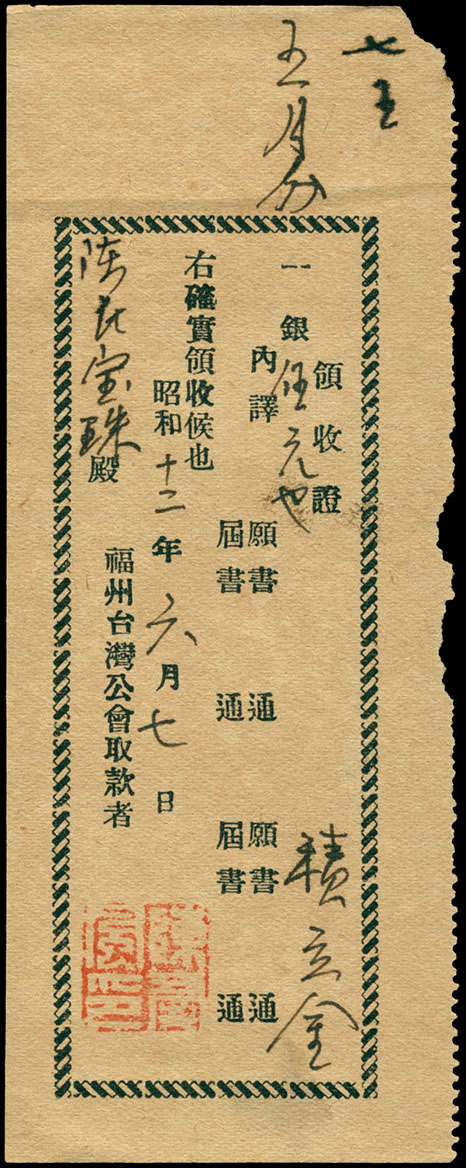 七五
五月份
領收證
一銀伍元也 積立金
內譯 願書 通 願書 通
屆書 通 屆書 通
右確實領收候也
昭和十二年六月七日
福州台灣公會取款者
陳氏宝珠殿